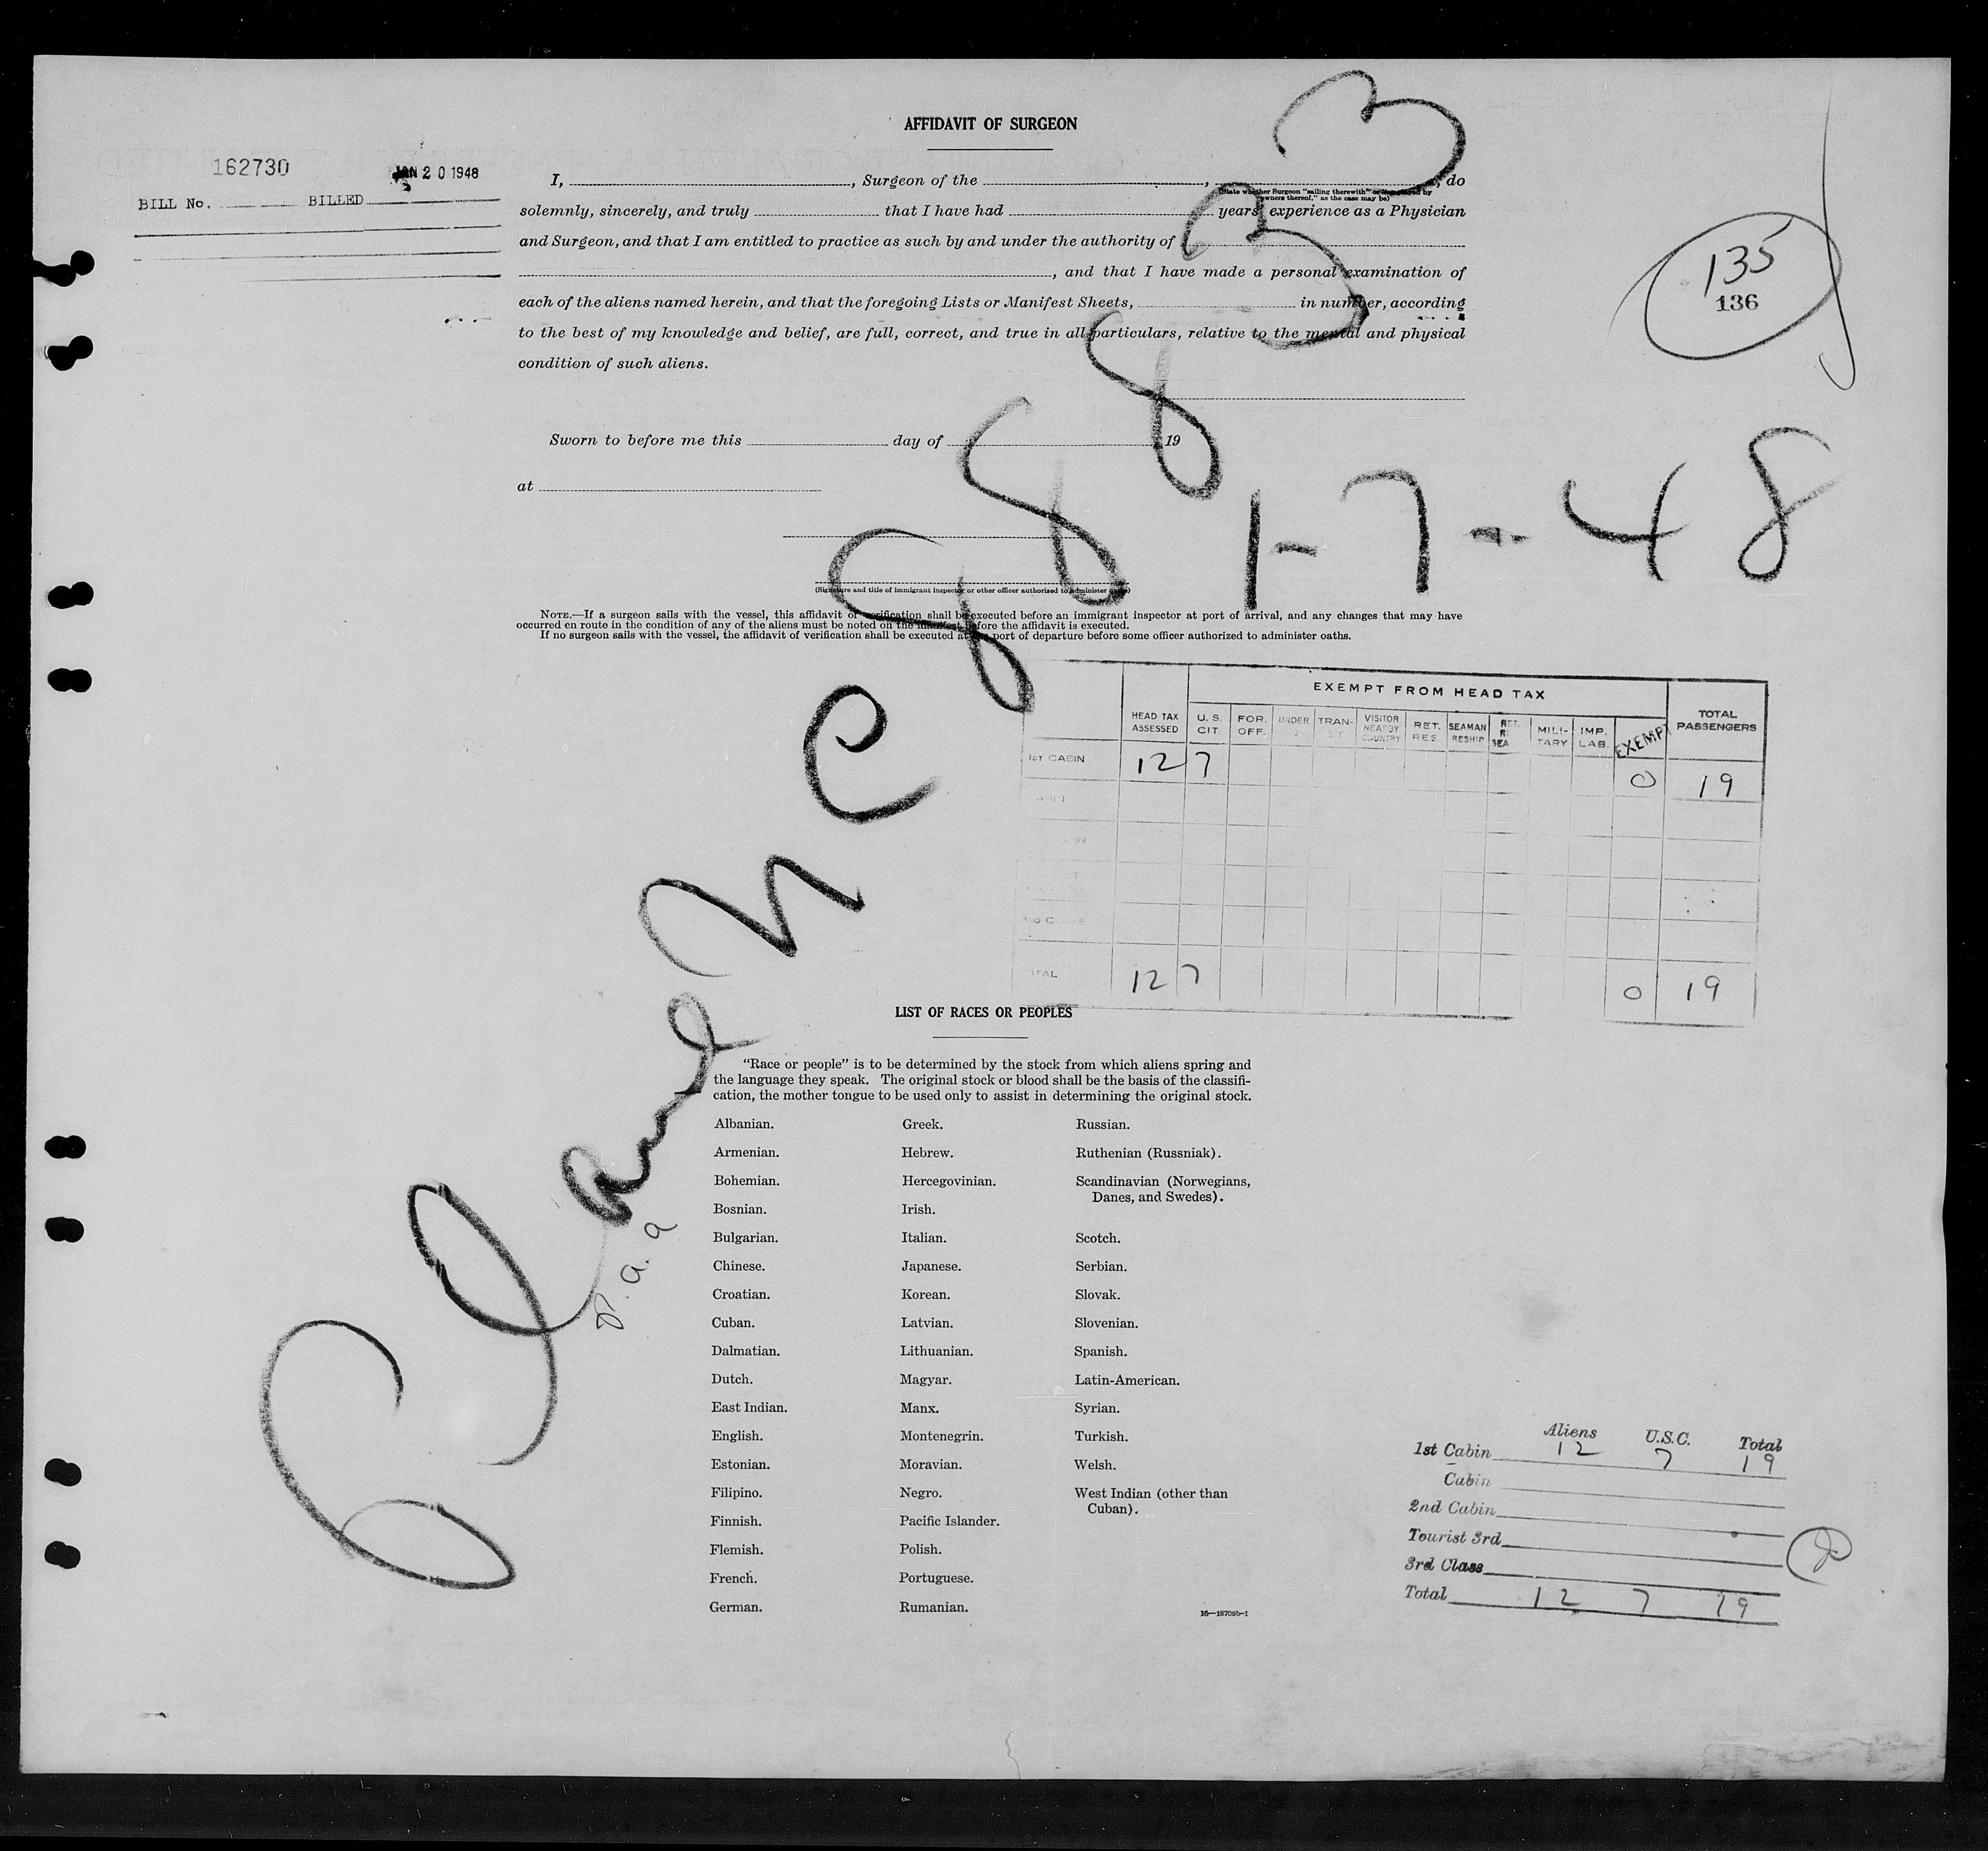 AFFIDAVIT OF SURGEON
162730
JAN 20 1948
BILL No. BILLED
I, , Surgeon of the , , do
(State whether Surgeon "sailing therewith" or "employed by owners thereof," as the case may be)
solemnly, sincerely, and truly that I have had years' experience as a Physician
and Surgeon, and that I am entitled to practice as such by and under the authority of
, and that I have made a personal examination of
each of the aliens named herein, and that the foregoing Lists or Manifest Sheets, in number, according
to the best of my knowledge and belief, are full, correct, and true in all particulars, relative to the mental and physical
condition of such aliens.
135
136
Sworn to before me this day of 19
at
(Signature and title of immigrant inspector or other officer authorized to administer oaths)
NOTE.—If a surgeon sails with the vessel, this affidavit of verification shall be executed before an immigrant inspector at port of arrival, and any changes that may have
occurred en route in the condition of any of the aliens must be noted on the manifest before the affidavit is executed.
If no surgeon sails with the vessel, the affidavit of verification shall be executed at the port of departure before some officer authorized to administer oaths.
Plane NC 88833
1-7-48
P.a.a
EXEMPT FROM HEAD TAX
HEAD TAX ASSESSED U. S. CIT. FOR. OFF. UNDER TRAN- VISITOR NEARBY COUNTRY RET. RES. SEAMAN RESHIP RET. SEA MILI- TARY IMP. LAB. EXEMPT TOTAL PASSENGERS
1ST CABIN 12 7 0 19
TOTAL 12 7 0 19
LIST OF RACES OR PEOPLES
"Race or people" is to be determined by the stock from which aliens spring and
the language they speak. The original stock or blood shall be the basis of the classifi-
cation, the mother tongue to be used only to assist in determining the original stock.
Albanian. Greek. Russian.
Armenian. Hebrew. Ruthenian (Russniak).
Bohemian. Hercegovinian. Scandinavian (Norwegians,
Danes, and Swedes).
Bosnian. Irish.
Bulgarian. Italian. Scotch.
Chinese. Japanese. Serbian.
Croatian. Korean. Slovak.
Cuban. Latvian. Slovenian.
Dalmatian. Lithuanian. Spanish.
Dutch. Magyar. Latin-American.
East Indian. Manx. Syrian.
English. Montenegrin. Turkish.
Estonian. Moravian. Welsh.
Filipino. Negro. West Indian (other than
Cuban).
Finnish. Pacific Islander.
Flemish. Polish.
French. Portuguese.
German. Rumanian.
16—18709b-1
Aliens U.S.C. Total
1st Cabin 12 7 19
Cabin
2nd Cabin
Tourist 3rd
3rd Class
Total 12 7 19